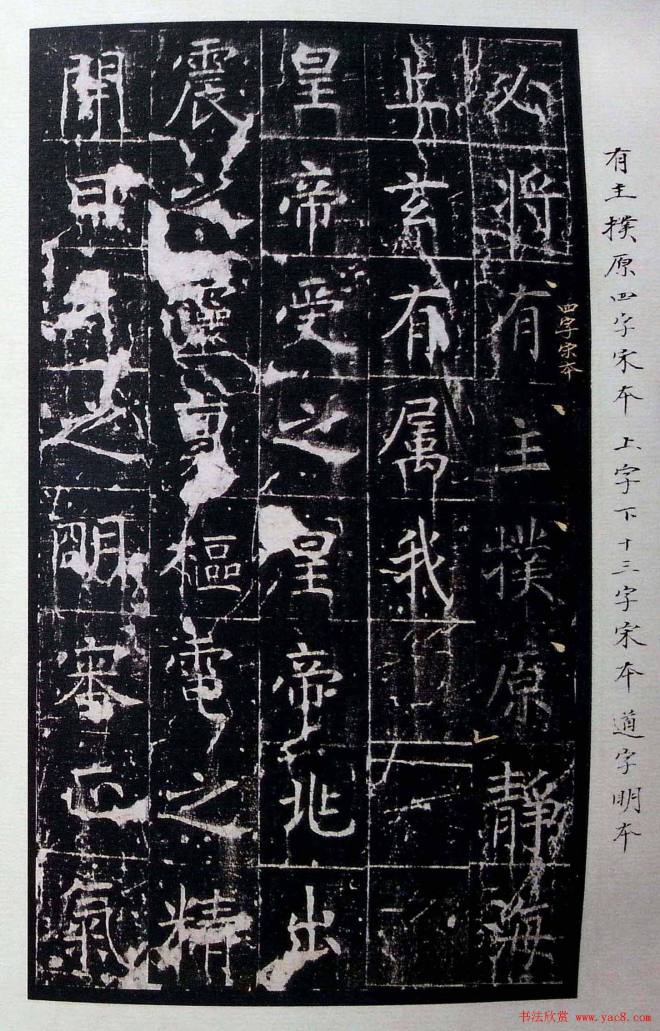 有主撲原四字宋本 上字下十三字宋本 道字明本
四字宋本
必将有主撲原靜海
上玄有属我
皇帝受之皇帝北出
震之靈樞電之精
開日月之明審正氣
书法欣赏 www.yac8.com